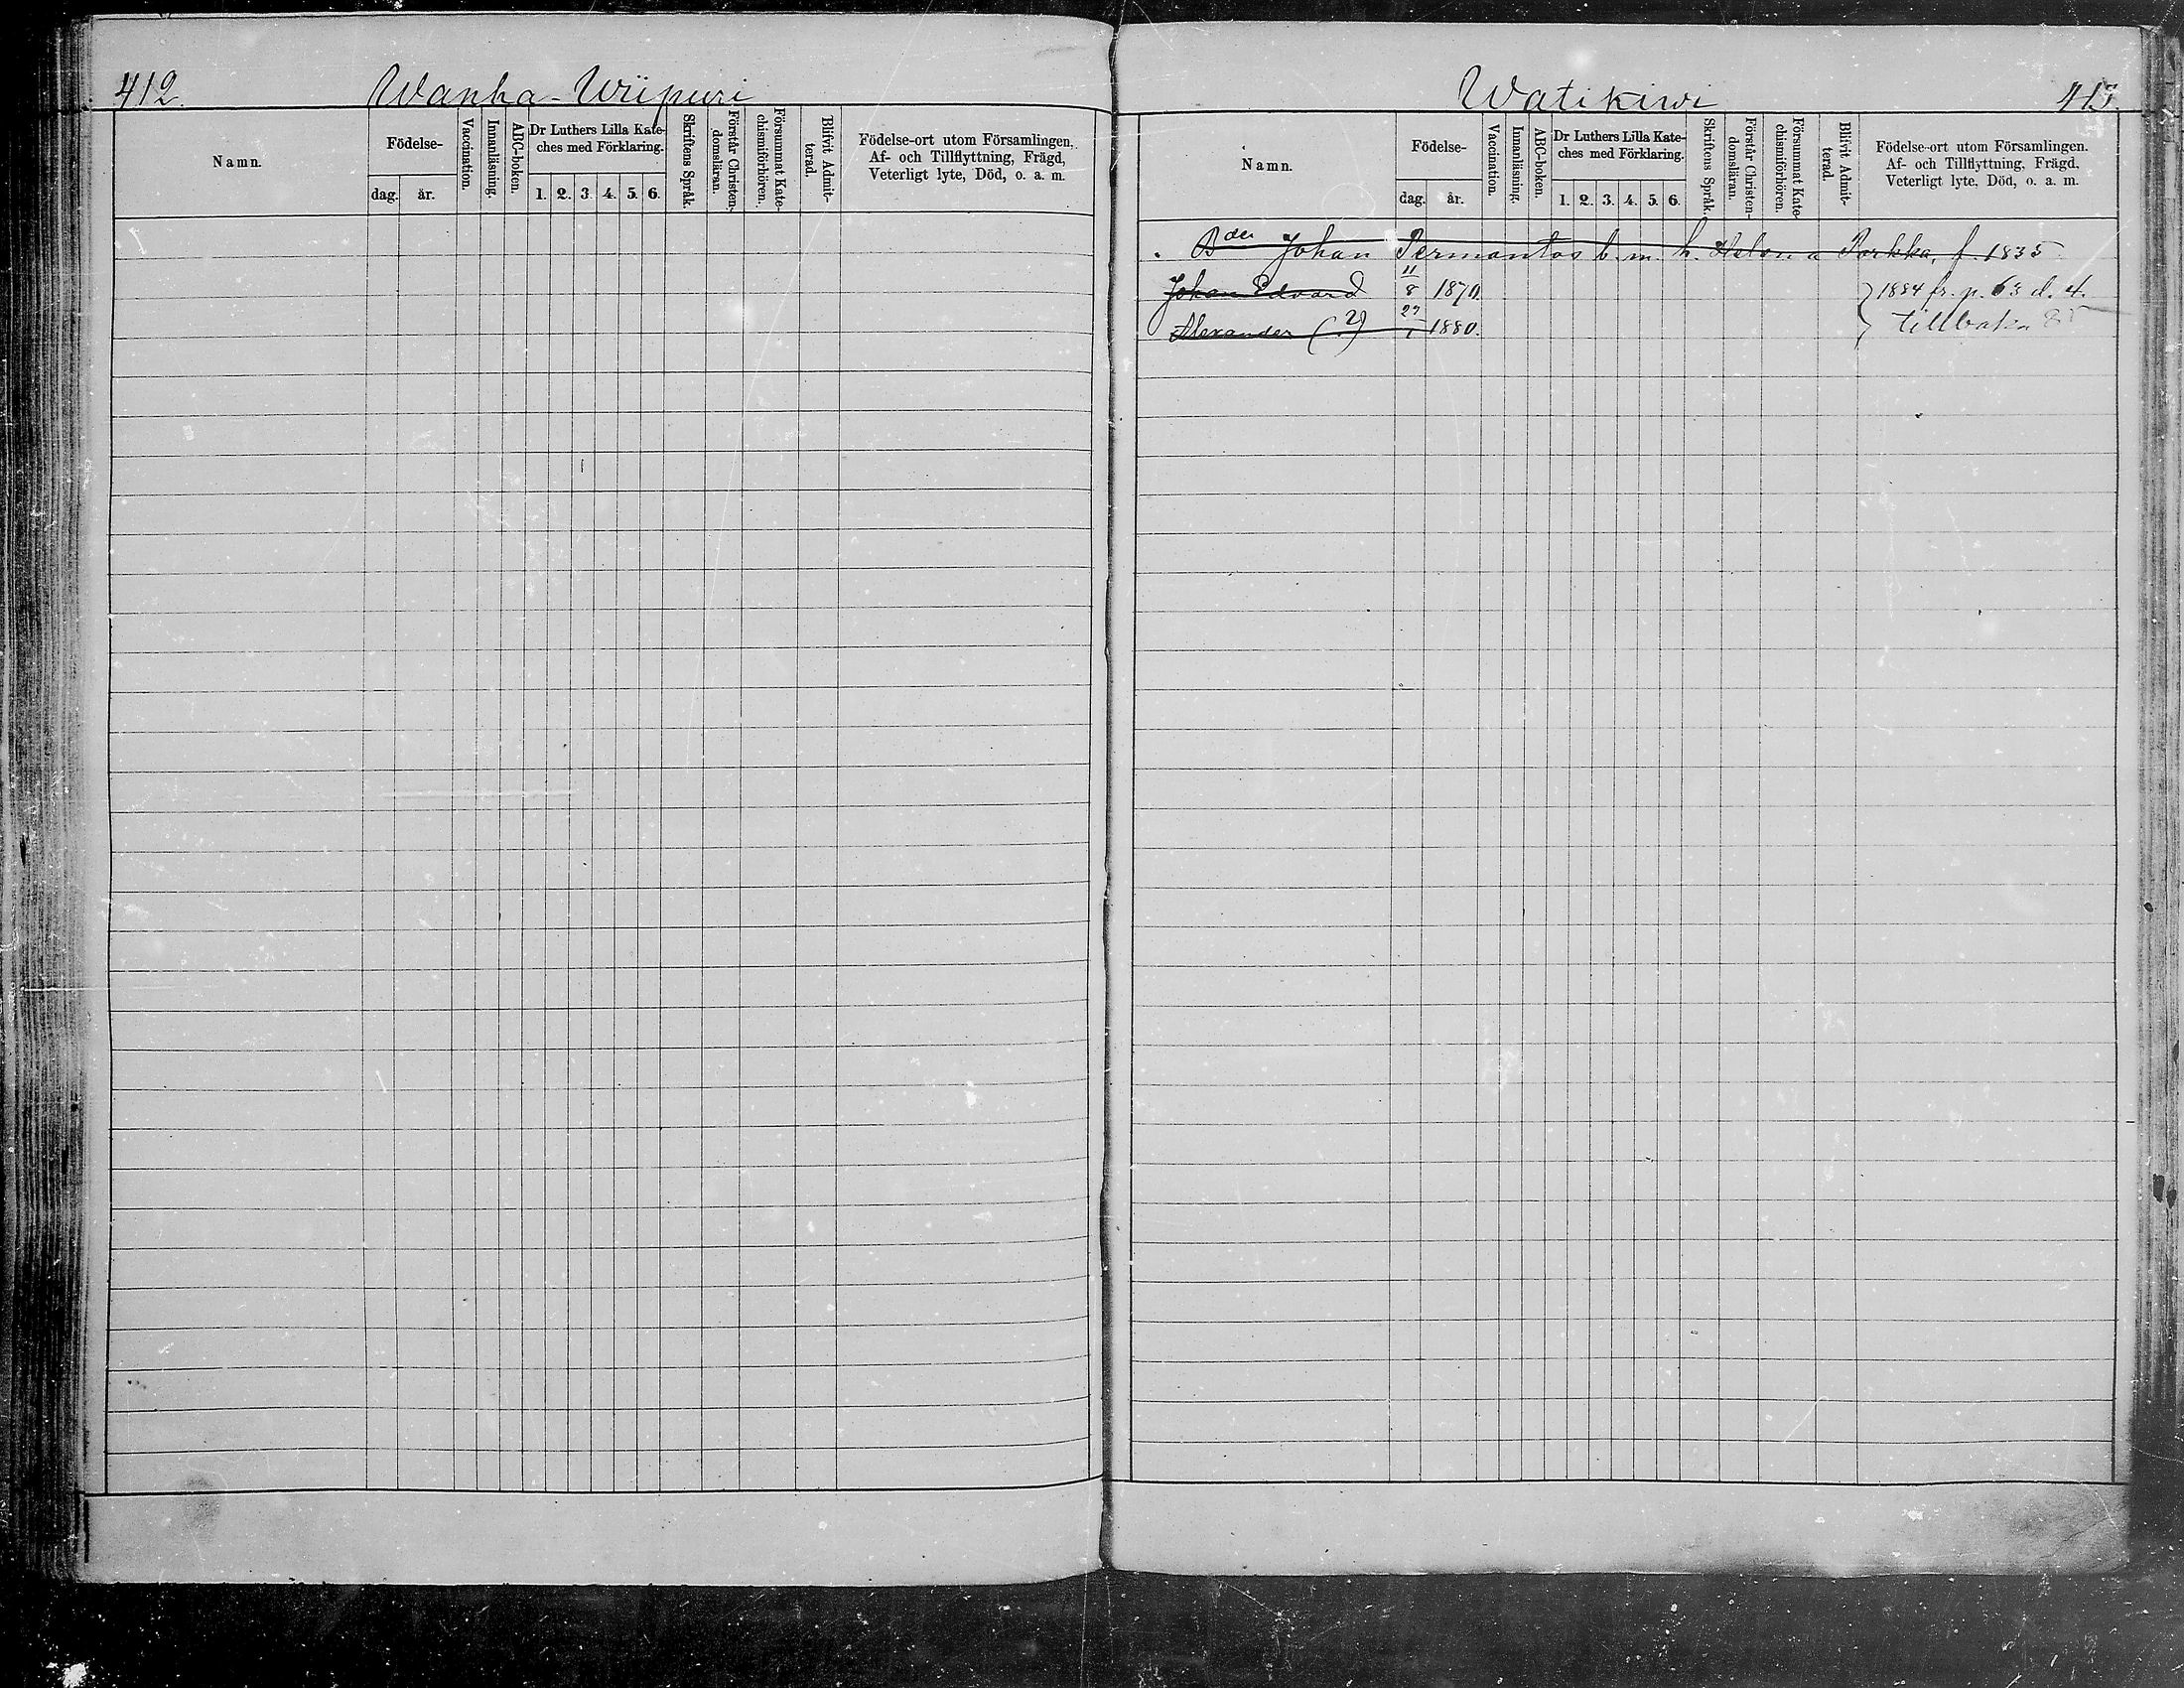 412. Wanha-Wiipuri
Namn.
Födelse-
dag. år.
Vaccination.
Innanläsning.
ABC-boken.
Dr Luthers Lilla Kate-
ches med Förklaring.
1. 2. 3. 4. 5. 6.
Skriftens Språk.
Förstår Christen-
domsläran.
Försummat Kate-
chismiförhören.
Blifvit Admit-
terad.
Födelse-ort utom Församlingen,
Af- och Tillflyttning, Frägd,
Veterligt lyte, Död, o. a. m.
Watikiwi 413.
Namn.
Födelse-
dag. år.
Vaccination.
Innanläsning.
ABC-boken.
Dr Luthers Lilla Kate-
ches med Förklaring.
1. 2. 3. 4. 5. 6.
Skriftens Språk.
Förstår Christen-
domsläran.
Försummat Kate-
chismiförhören.
Blifvit Admit-
terad.
Födelse-ort utom Församlingen.
Af- och Tillflyttning, Frägd,
Veterligt lyte, Död, o. a. m.
Bden Johan Permantos b. m. h. Helena Parkka, f. 1835
Johan Edvard 11/8 1870 1884 fr. p. 63 d. 4.
Alexander (2) 1880. tillbaka 85